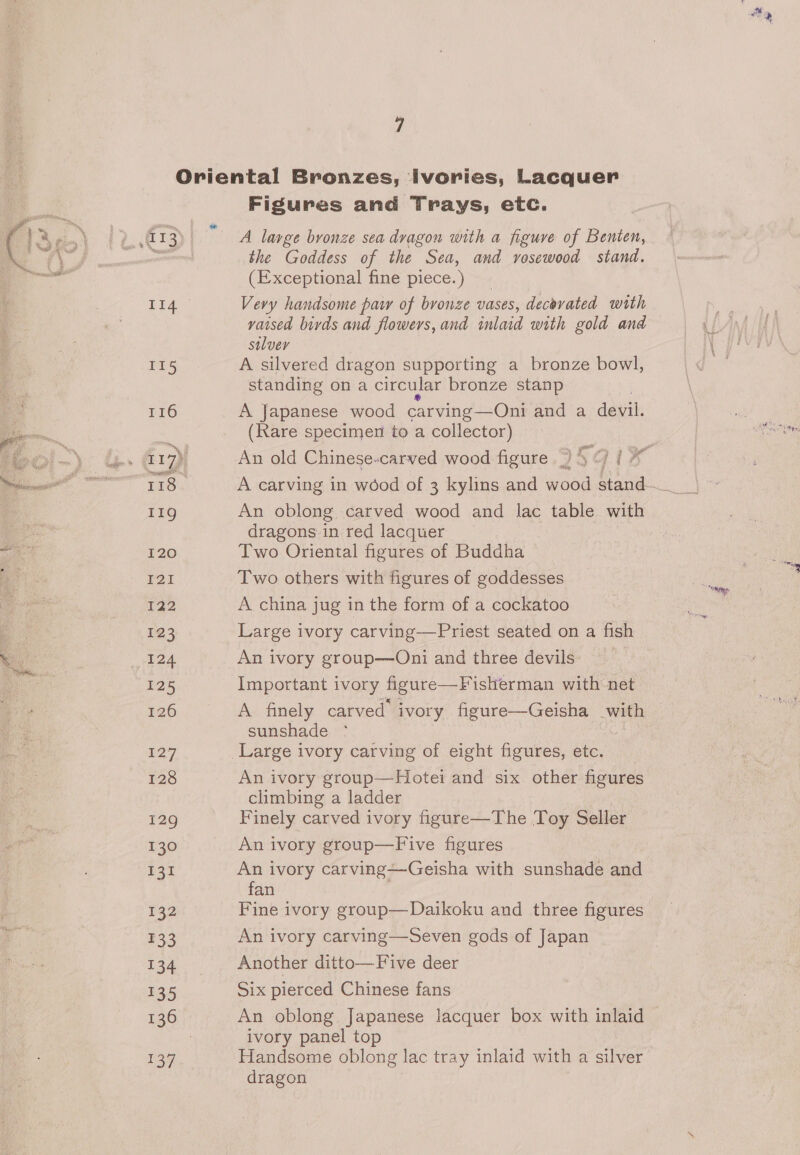 7
Oriental Bronzes, Ivories, Lacquer
Figures and Trays, etc.
113 A large bronze sea dragon with a figure of Benten,
the Goddess of the Sea, and rosewood stand.
(Exceptional fine piece.)
114 Very handsome pair of bronze vases, decorated with
raised birds and flowers, and inlaid with gold and
silver
115 A silvered dragon supporting a bronze bowl,
standing on a circular bronze stanp
116 A Japanese wood carving—Oni and a devil.
(Rare specimen to a collector)
117 An old Chinese-carved wood figure
118 A carving in wood of 3 kylins and wood stand
119 An oblong carved wood and lac table with
dragons in red lacquer
120 Two Oriental figures of Buddha
121 Two others with figures of goddesses
122 A china jug in the form of a cockatoo
123 Large ivory carving—Priest seated on a fish
124 An ivory group—Oni and three devils
125 Important ivory figure—Fisherman with net
126 A finely carved ivory figure—Geisha with
sunshade
127 Large ivory carving of eight figures, etc.
128 An ivory group—Hotei and six other figures
climbing a ladder
129 Finely carved ivory figure—The Toy Seller
130 An ivory group—Five figures
131 An ivory carving—Geisha with sunshade and
fan
132 Fine ivory group—Daikoku and three figures
133 An ivory carving—Seven gods of Japan
134 Another ditto—Five deer
135 Six pierced Chinese fans
136 An oblong Japanese lacquer box with inlaid
ivory panel top
137 Handsome oblong lac tray inlaid with a silver
dragon